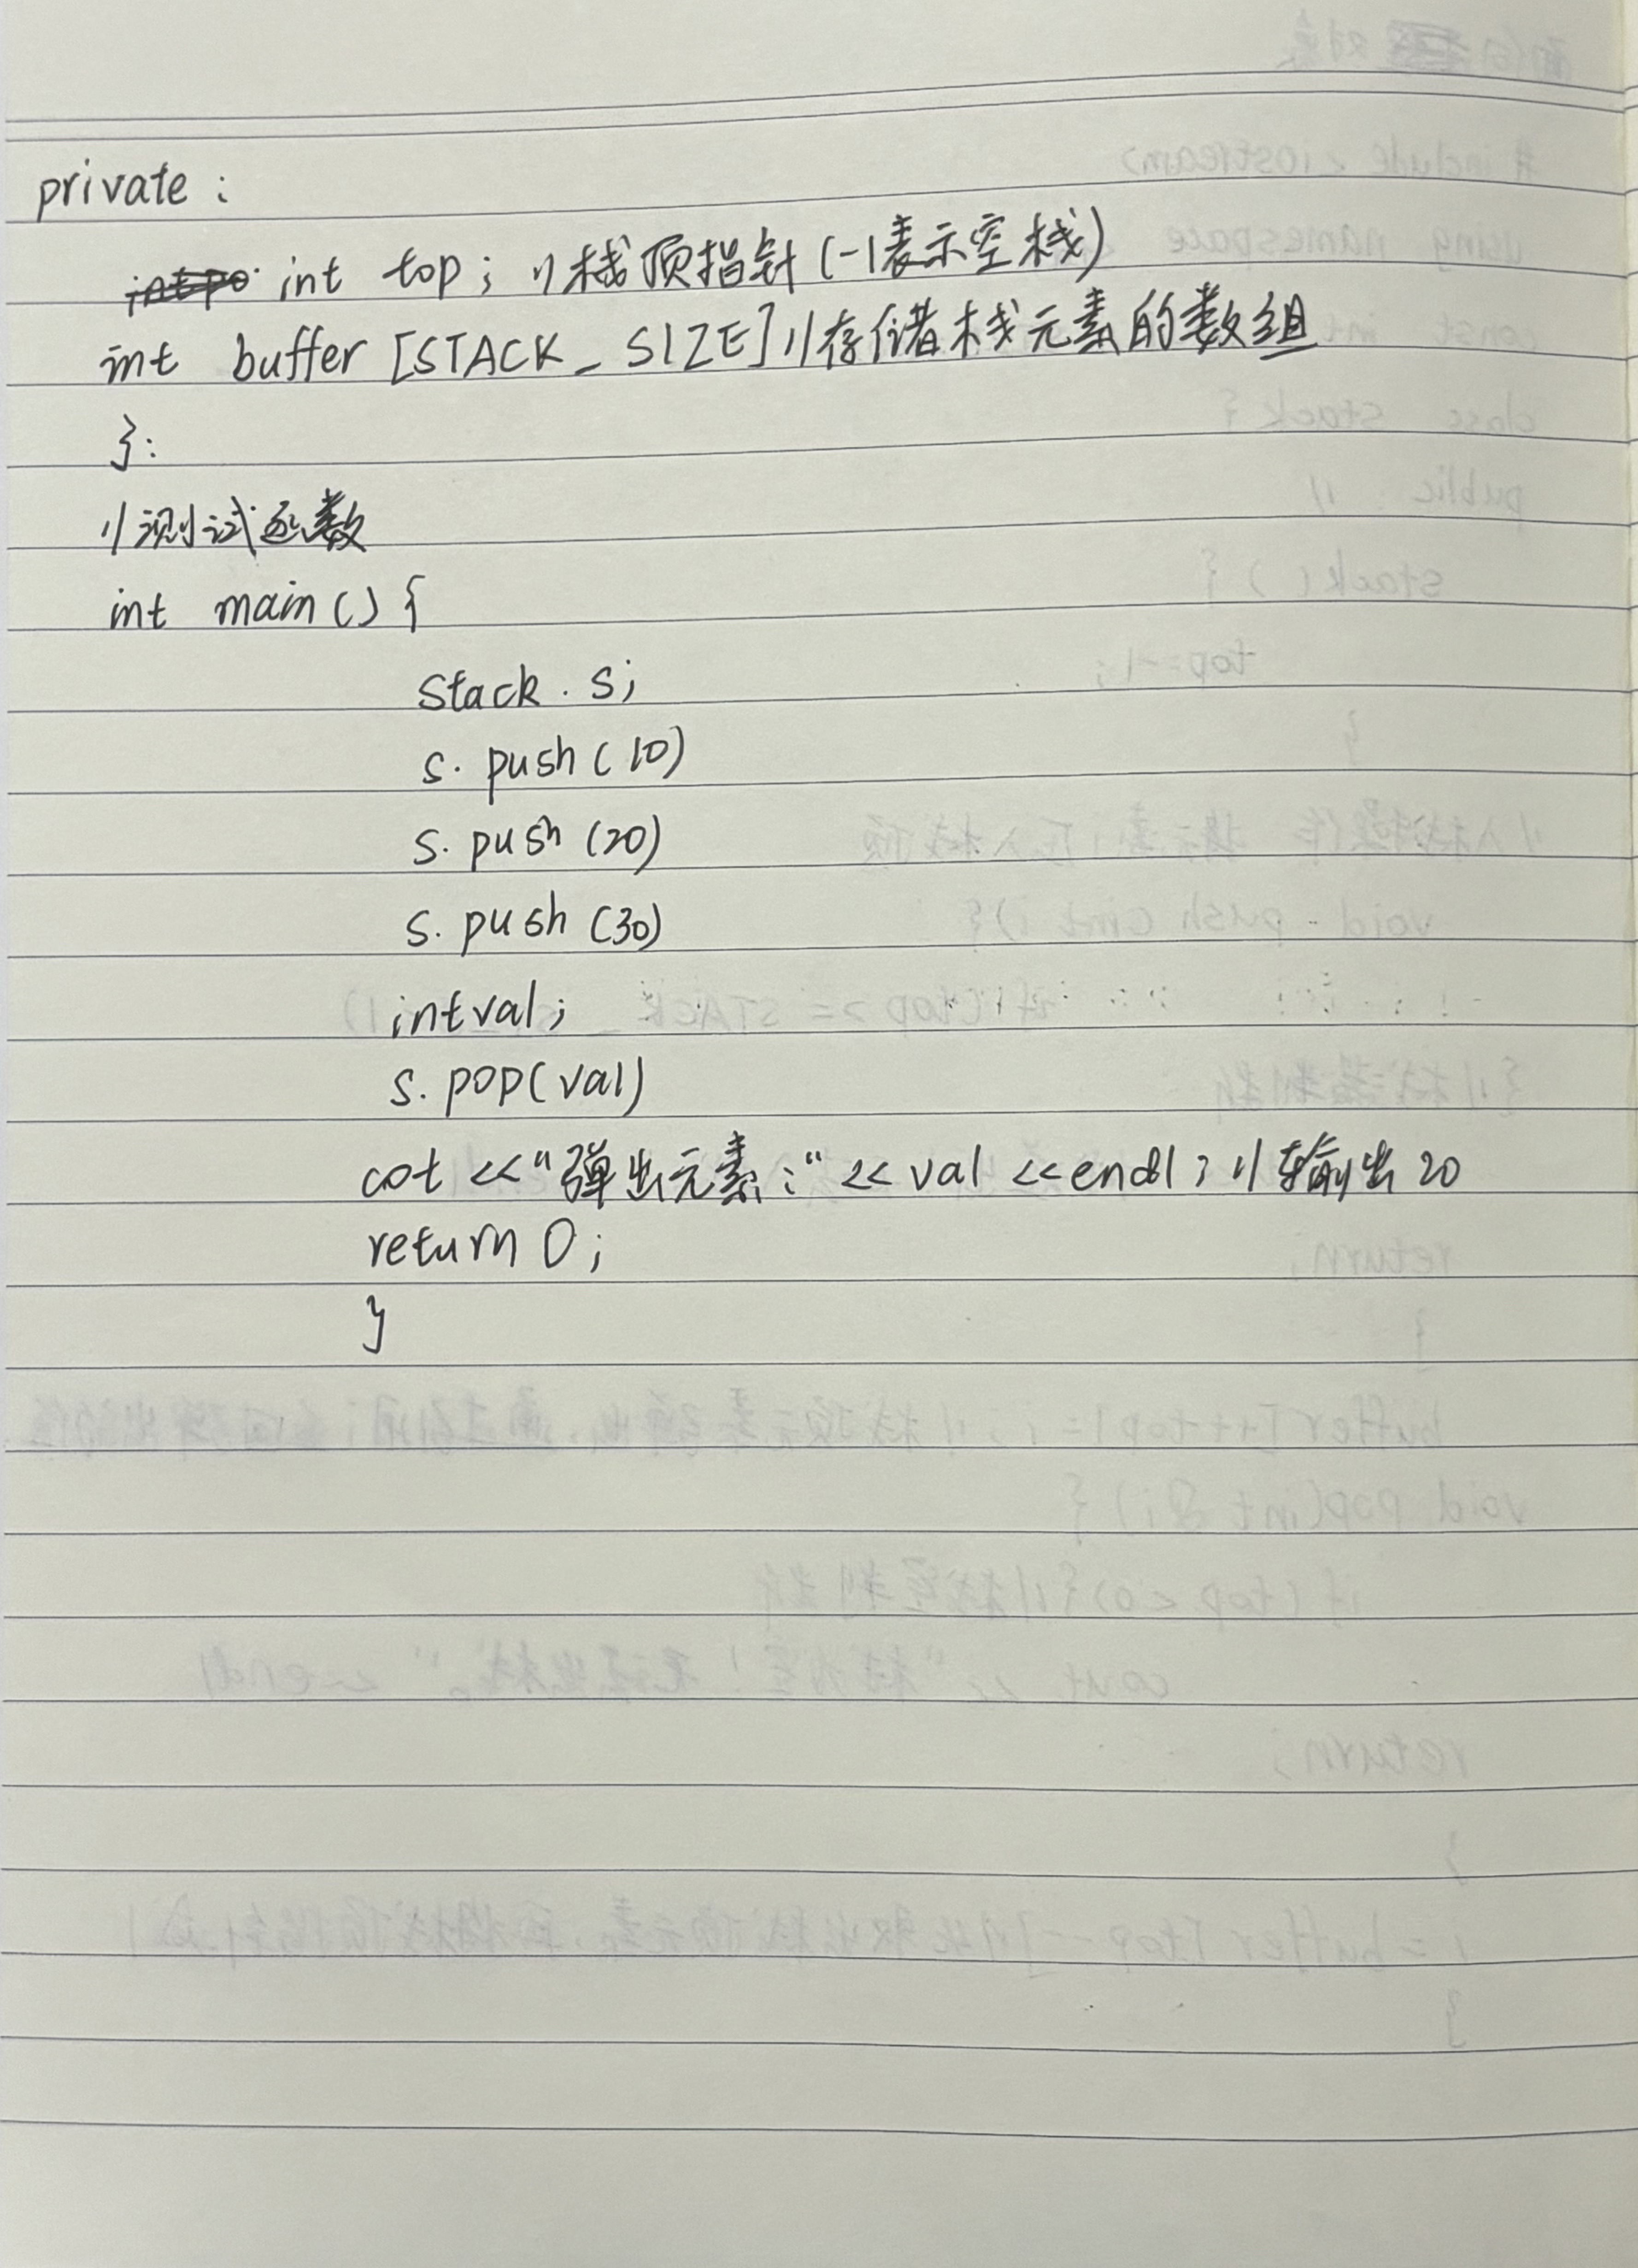 private :
int top; //栈顶指针(-1表示空栈)
int buffer [STACK_SIZE]//存储栈元素的数组
}:
//测试函数
int main() {
Stack . s;
s. push (10)
s. push (20)
s. push (30)
int val;
s. pop(val)
cot <<"弹出元素:" << val <<endl; //输出20
return 0;
}